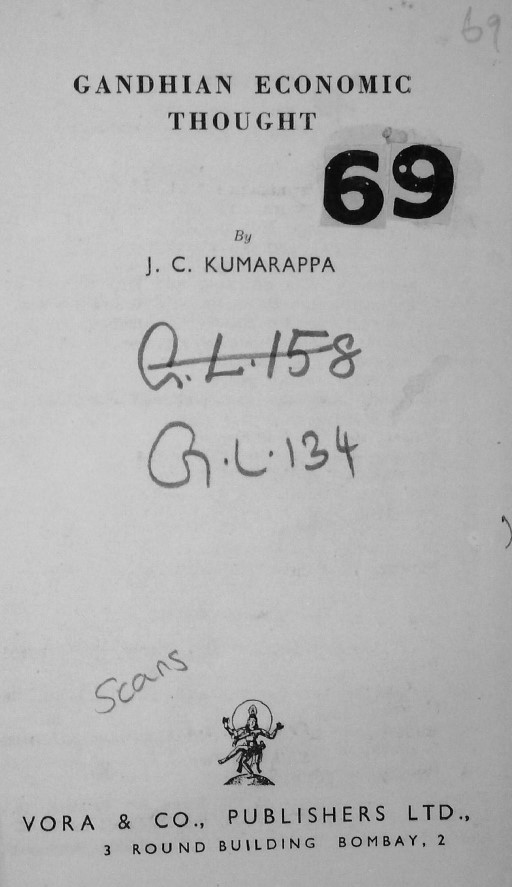 69
GANDHIAN ECONOMIC
THOUGHT
69
By
J. C. KUMARAPPA
G.L.158
G.L.134
Scans
VORA & CO., PUBLISHERS LTD.,
3 ROUND BUILDING BOMBAY, 2